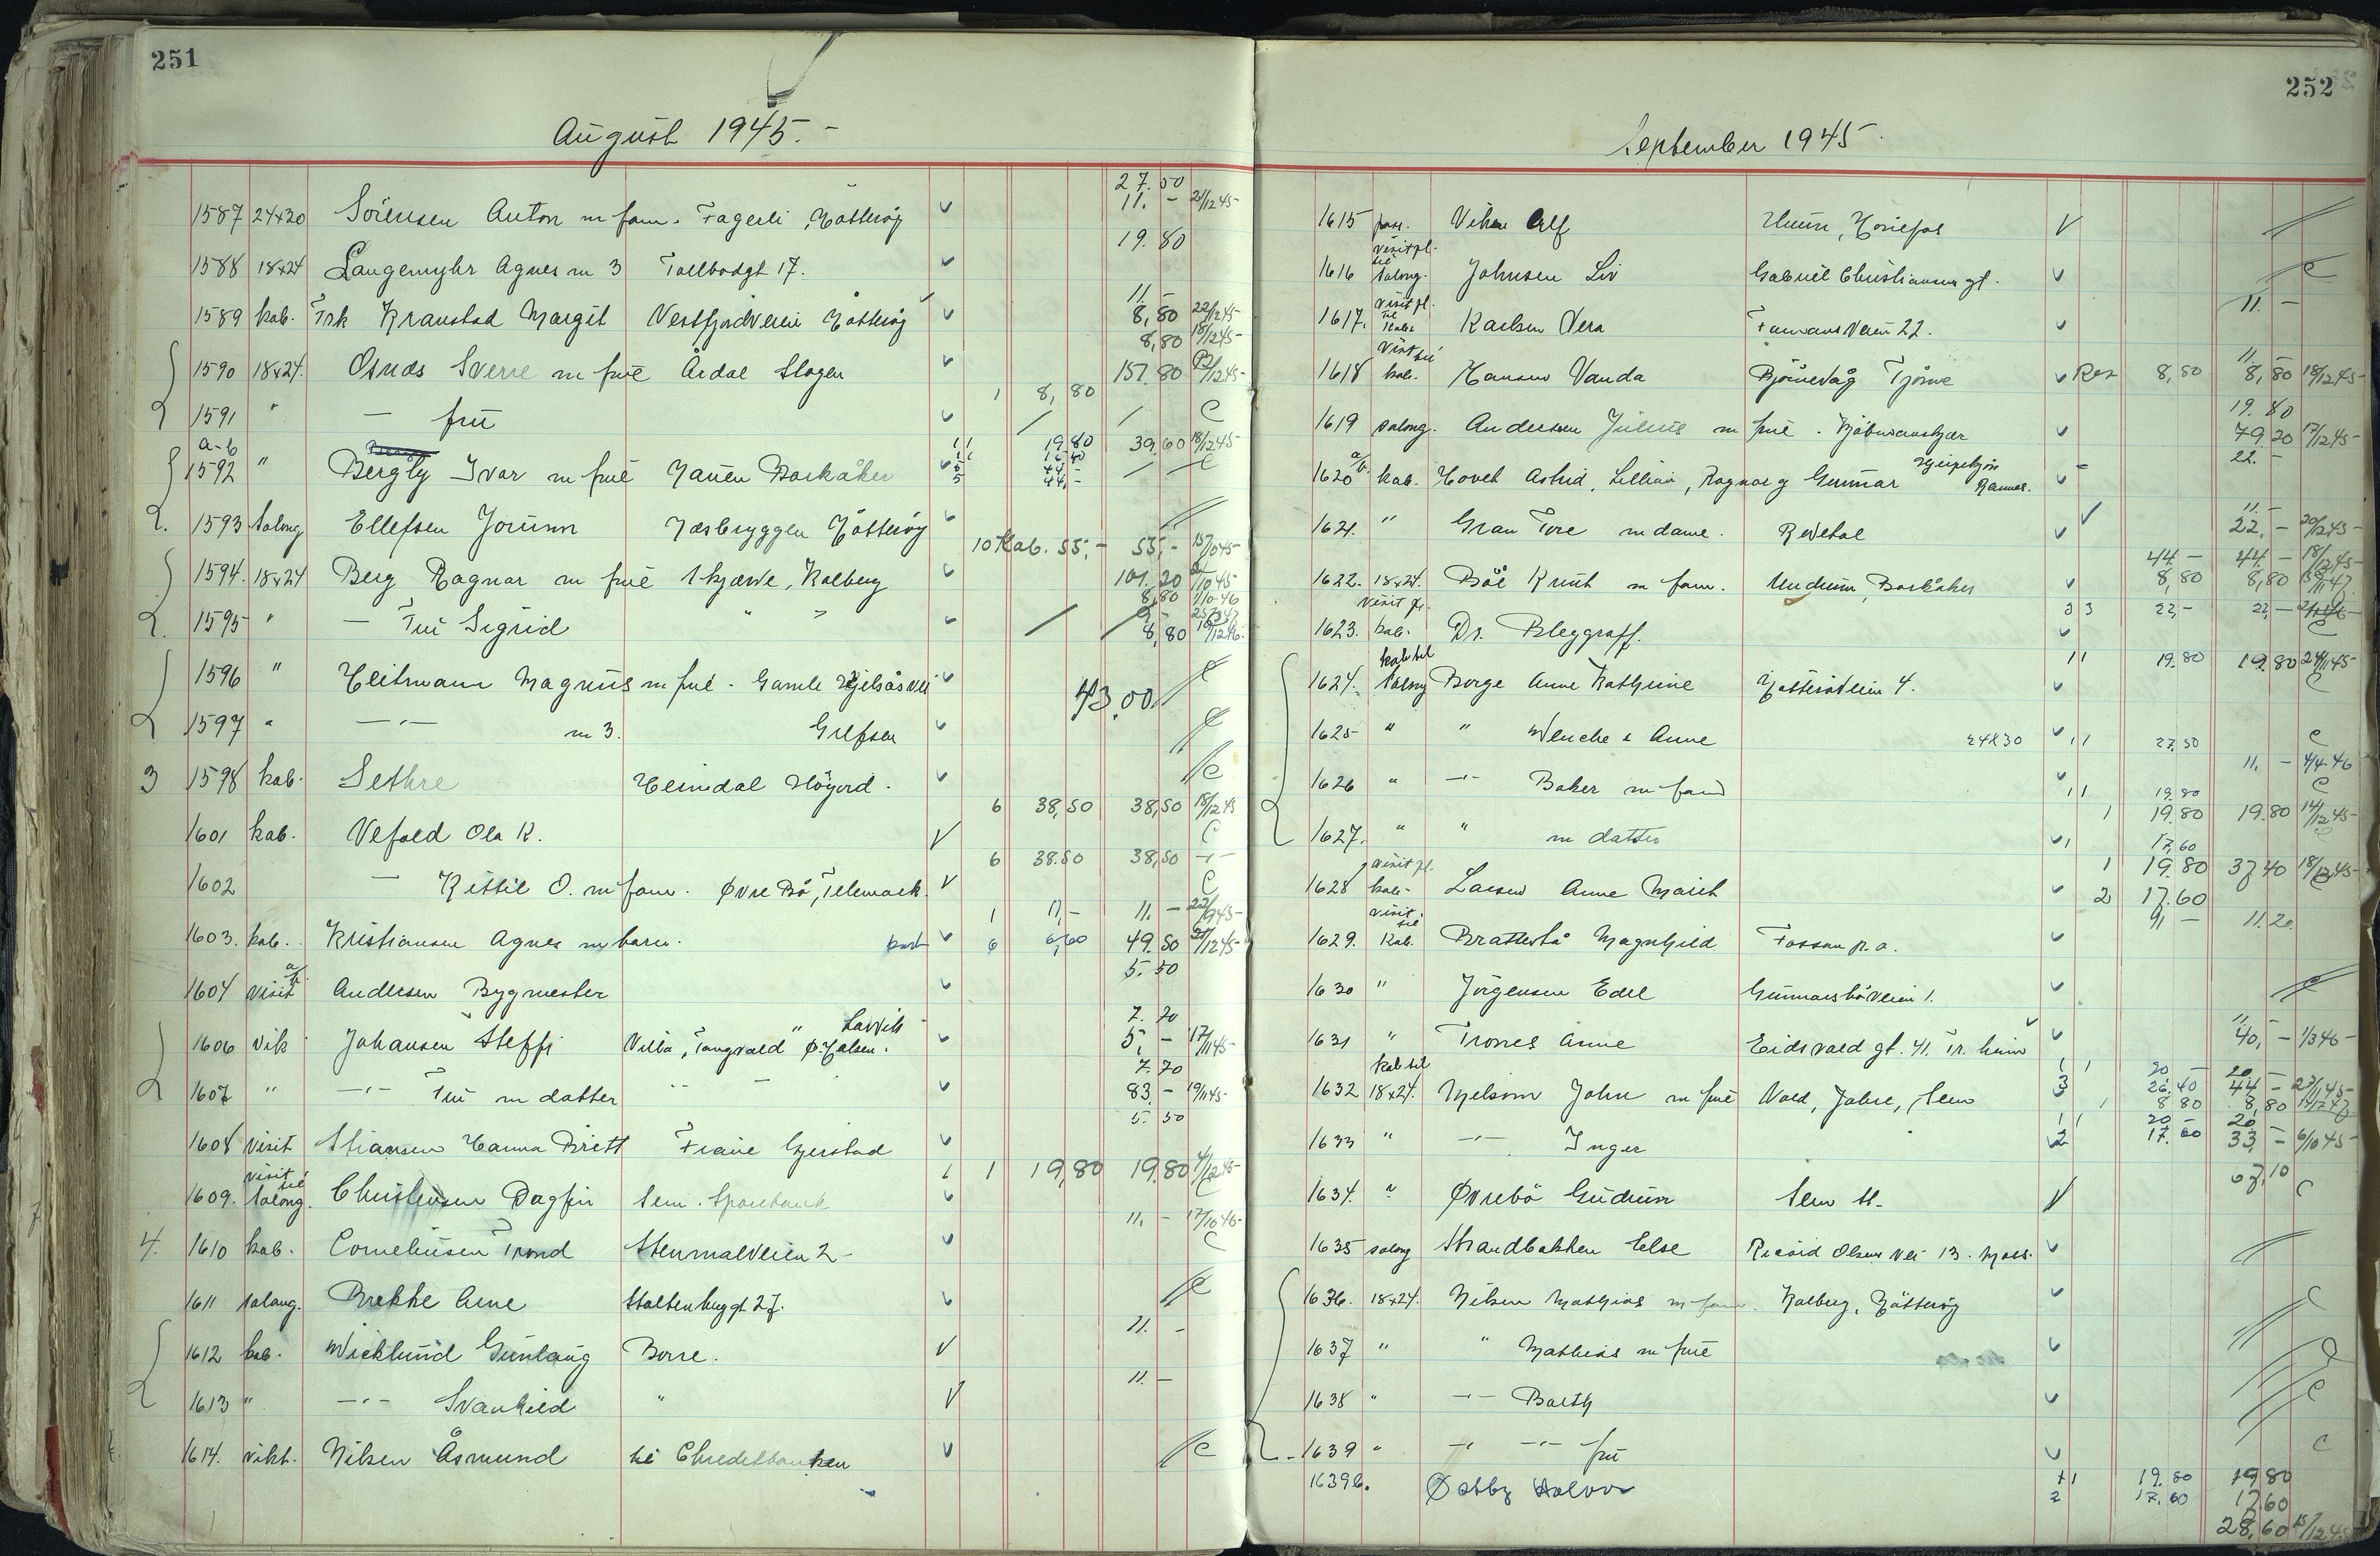 251
August 1945.-
27.50
1587 24x30 Sörensen Anton m fam. Fagerli, Nötteröy 11.- 21/12 45-
19.80
1588 18x24 Langemyhr Agnes m 3 Tollbodgt 17.
11.-
1589 kab. Frk Kranstad Margit Vestfjordveien Nötteröy 8,80 22/12 45-
8,80 18/12 45-
1590 18x24. Osnes Sverre m frue Årdal Slagen 157.80
1 8,80
1591 " — frü C
a-b 11 19.80 39.60 18/12 45-
1592 " Bergby Ivar m frue Nauen Barkåker 5 44.-
5 44.-
1593 salong Ellefsen Jorunn Næsbryggen Nötteröy
10 Kab. 55,- 55,- 15/10 45-
1594. 18x24 Berg Ragnar m frue Skjærve, Kalberg 101.20
8,80 1/10-46
1595- " — Frü Sigrid " " 8,80
1596 " Heitmann Magnus m frue - Gamle Kjelsåsvei C
43,00
1597 " —"— m 3. Grefsen C
3 1598 kab. Sethre Heimdal Höyord. C
6 38,50 38,50 18/12 45
1601 kab. Vefald Ola K. C
6 38.50 38,50 —"—
1602 — Kittil O. m fam. Øvre Bö, Telemark. C
1 11,- 11.- 22/9 45-
1603. kab. Kristiansen Agnes m barn. kort 6 6,60 49.50 21/12 45-
5.50
1604 visit a/b Andersen Bygmester
7.70
Larvik
1606 vik Johansen Steffi Villa "Tangvald" Ø. Halsen. 5,- 17/11 45-
7.70
1607 " —"— Frü m datter " — 83.- 19/11 45-
5.50
1608 visit Stiansen Hanna Britt Fraue Gjerstad
visit til 1 1 19,80 19.80 4/12 45-
1609. salong. Christensen Dagfin Sem. Sparebank C
11.- 17/10 46-
4. 1610 kab. Corneliusen Trond Stenmalveien 2- C
1611 salong. Brekke Arne Stoltenberggt 27. C
11.-
1612 kab. Wicklund Gunlaug Borre.
11.-
1613 " —"— Svanhild "
1614. vikt. Nilsen Åsmund til Chreditbanken C
252
September 1945.
1615 pass. Vihar Alf Unnr, Hönefos
visitpl. til
1616 salong. Johnsen Liv Gabriel Christiansens gt. C
visit pl. til 11.-
1617. kab. Karlsen Vera Farmansveien 22.
visit til 11.-
1618 kab. Hansen Vanda Björnevåg Tjöme Rep 8,80 8,80 18/12 45-
19.80
1619 salong. Andersen Julius m frue. Kjöbmannskjær 79.20 17/12 45-
22.-
1620 a/b kab. Hovet Astrid, Lillian, Ragnar og Gunnar Ramnes.
11.-
1621. " Gran Tore m dame. Revetal 22.- 20/12 45-
44.- 44.- 18/12 45-
1622. 18x24. Böe Knut m fam. Undrum, Barkåker 8,80 8,80
visit pl. 3 3 22,- 22,-
1623. kab. Dr. Bleggraff. C
kab til 11 19.80 19.80 24/11 45-
1624. salong Borge Anne Kathrine Nötteröveien 4. C
1625- " " Wenche & Anne 24x30 11 27.50 C
11.- 4/4-46
1626 " —"— Baker m fam 11 19.80 C
1 19.80 19.80 14/12 45-
1627. " " m datter 1 17,60
visit pl. 1 19.80 37,40 18/12 45-
1628 kab.- Larsen Anne Marit 2 17.60
visit til 11.20
1629. Kab. Brattestå Magnhild Fossan p.a.
1630 " Jörgensen Edel Gunnarsböveien 1. C
11.-
1631 " Trones Anne Eidsvold gt. 41. Tr.heim 40,- 1/3 46-
kab til 1 1 20 - 20.-
1632 18x24. Melsom John m frue Vold, Jahre, Sem 3 26,40 44.- 27/11 45-
1 8 80 8,80
1 1 20 - 20.-
1633 " —"— Inger 2 17.60 33,- 6/10 45-
67,10
1634. " Øvrebö Gudrun Sem St- C
1635 salong Strandbakken Else Ricard Olsens vei 13. Moss.
1636. 18x24. Nilsen Mathias m fam. Kalberg, Nötteröy C
1637 " " Mathias m frue
1638 " —"— Barth C
1639 " —"— —"— frü C
1639b. Østby Halvor +1 19.80 19.80
2 17.60 17.60
28,60 15/12 45